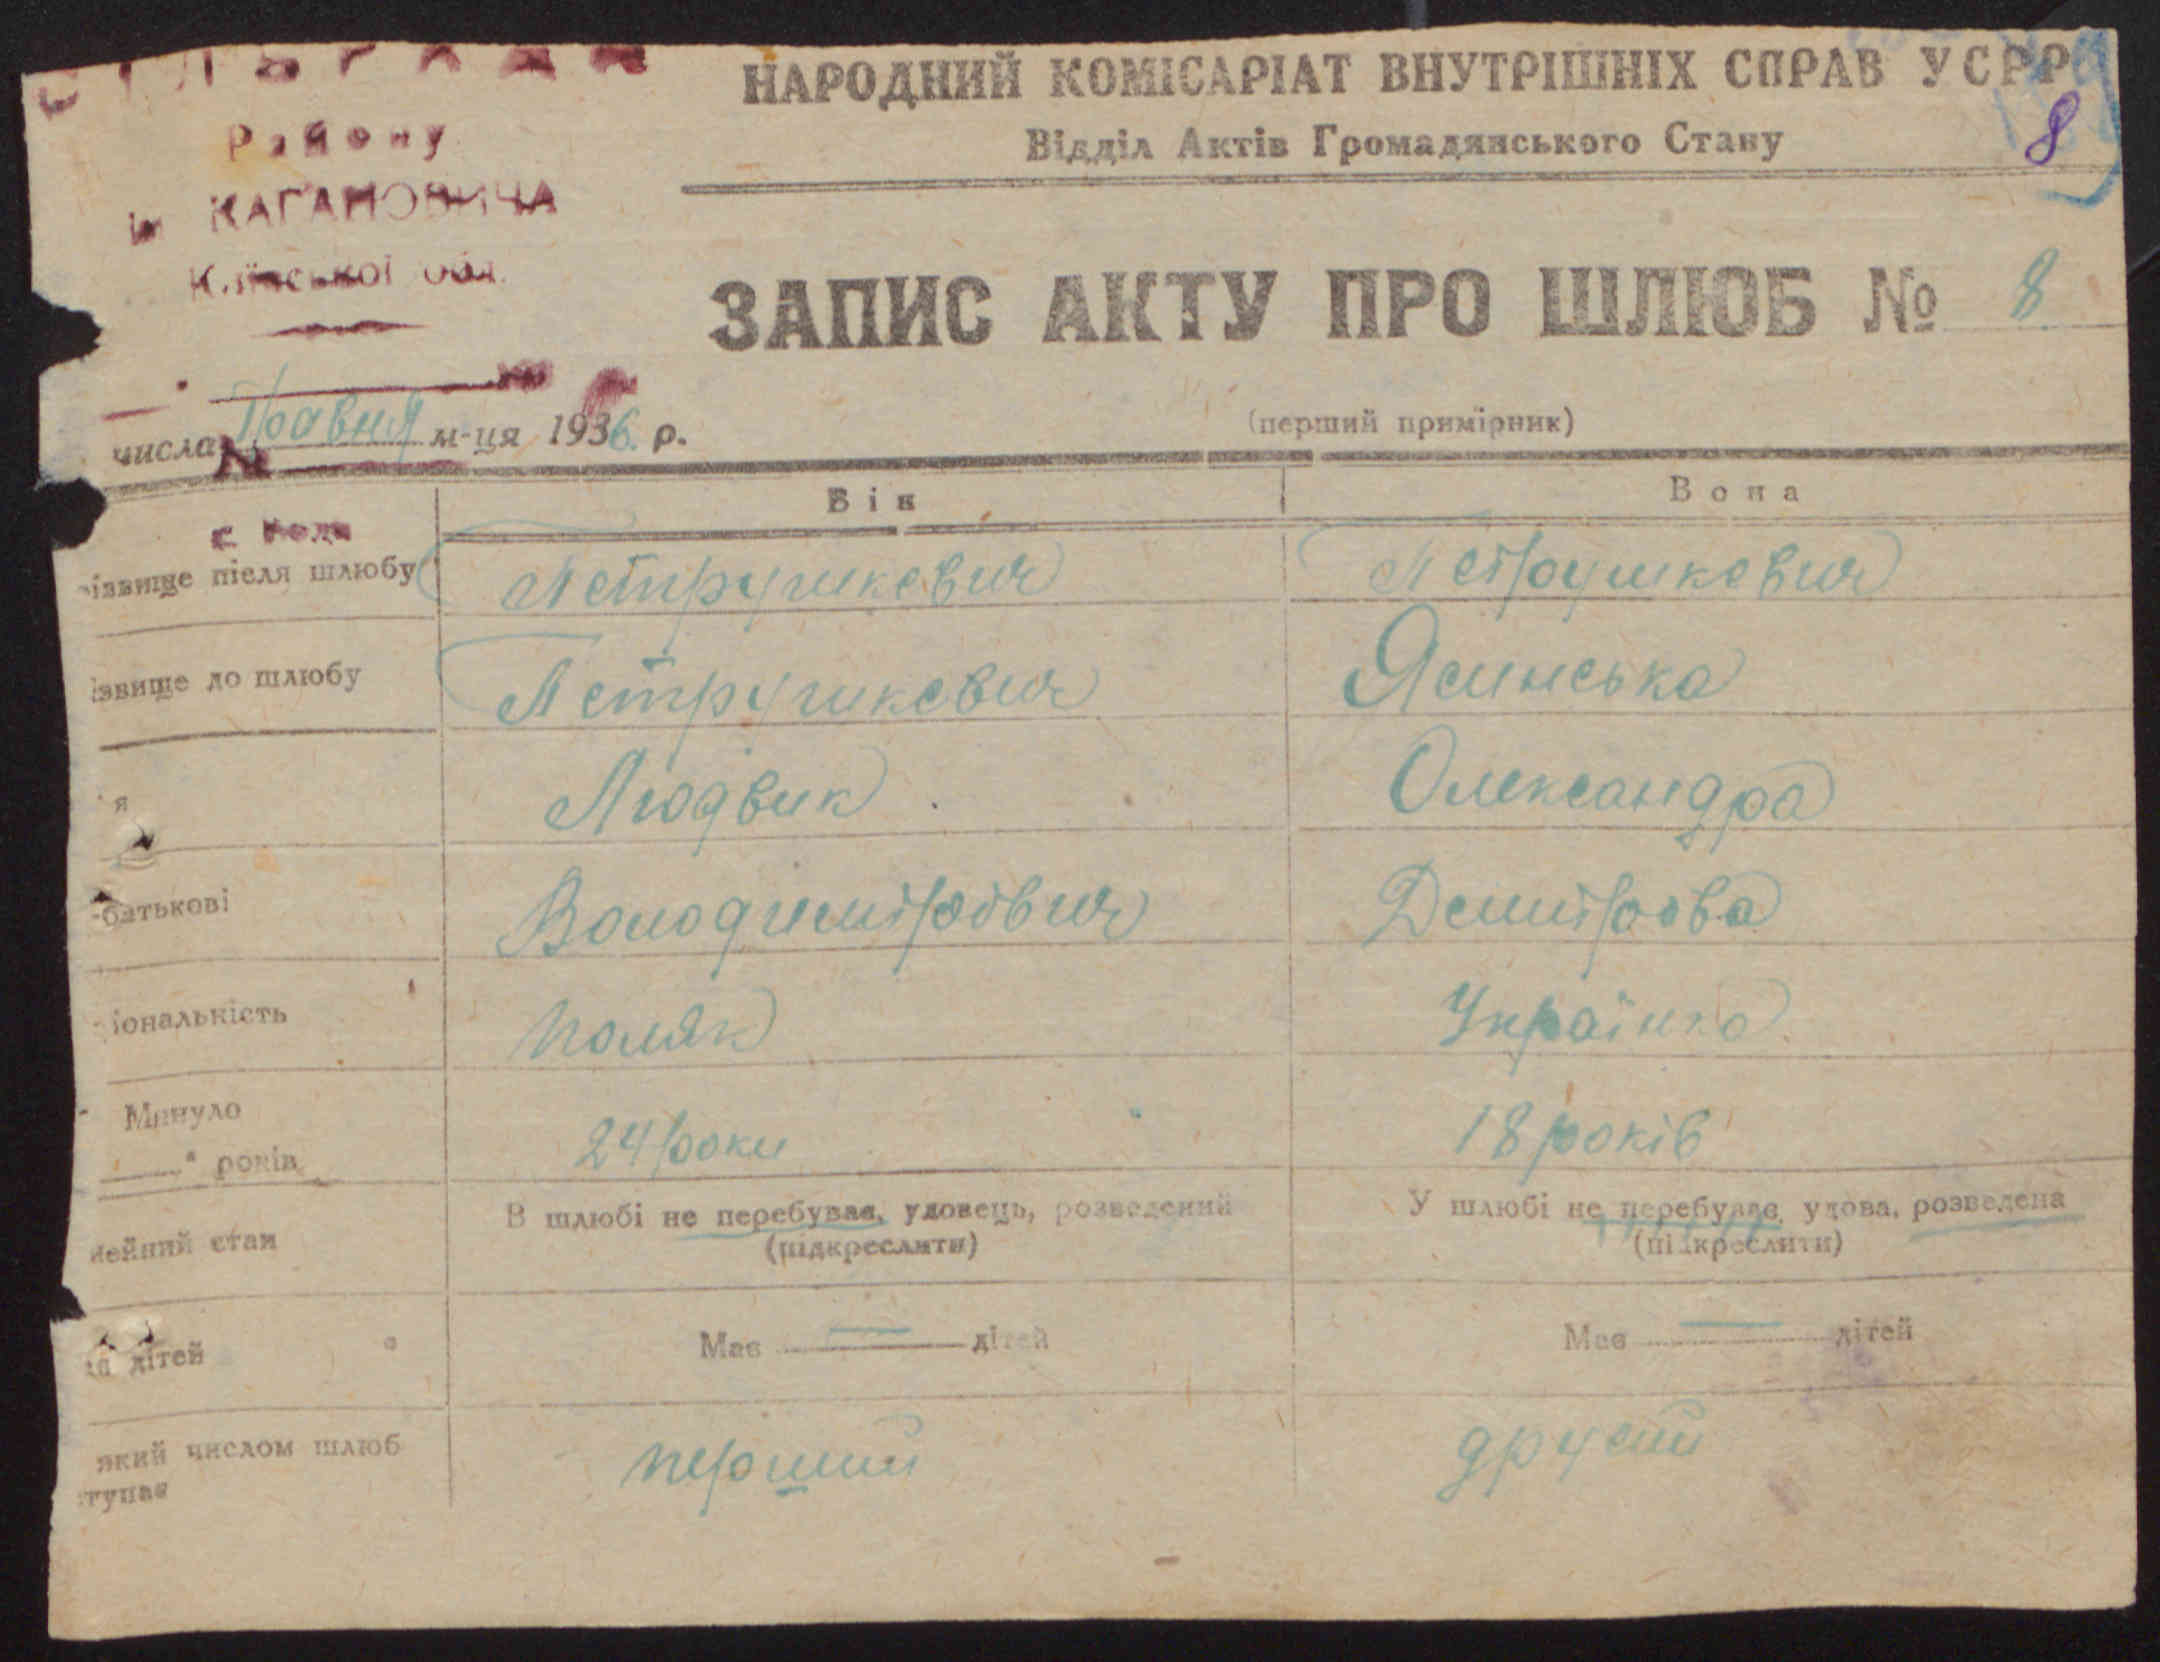 СІЛЬРАДА
Району
ім КАГАНОВИЧА
Київської обл.
НАРОДНИЙ КОМІСАРІАТ ВНУТРІШНІХ СПРАВ УСРР
Відділ Актів Громадянського Стану
8
ЗАПИС АКТУ ПРО ШЛЮБ № 8
(перший примірник)
числа Травня м-ця 1936 р.
№
Він Вона
різвище після шлюбу Петрушкевич Петрушкевич
ізвище до шлюбу Петрушкевич Ясинська
я Людвик Олександра
-батькові Володимирович Дмитрова
іональність поляк Українка
Минуло
" років 24 роки 18 років
мейний стан В шлюбі не перебуває, удовець, розведений У шлюбі не перебуває, удова, розведена
(підкреслити) (підкреслити)
дітей Має — дітей Має — дітей
який числом шлюб перший другий
ступає